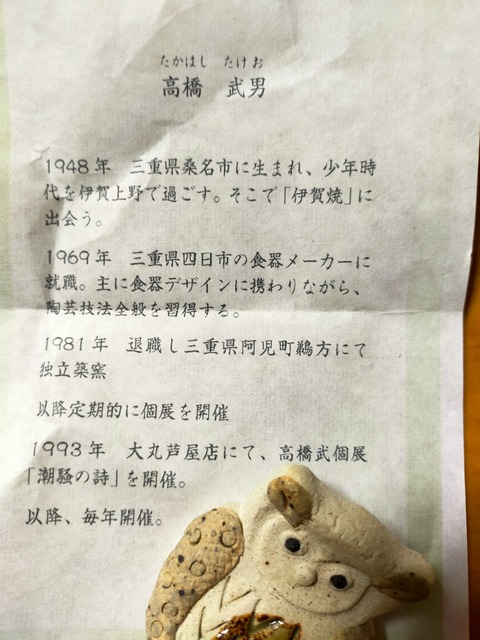 たかはし　たけお
高橋　武男
1948年　三重県桑名市に生まれ、少年時
代を伊賀上野で過ごす。そこで「伊賀焼」に
出会う。
1969年　三重県四日市の食器メーカーに
就職。主に食器デザインに携わりながら、
陶芸技法全般を習得する。
1981年　退職し三重県阿児町鵜方にて
独立築窯
以降定期的に個展を開催
1993年　大丸芦屋店にて、高橋武個展
「潮騒の詩」を開催。
以降、毎年開催。